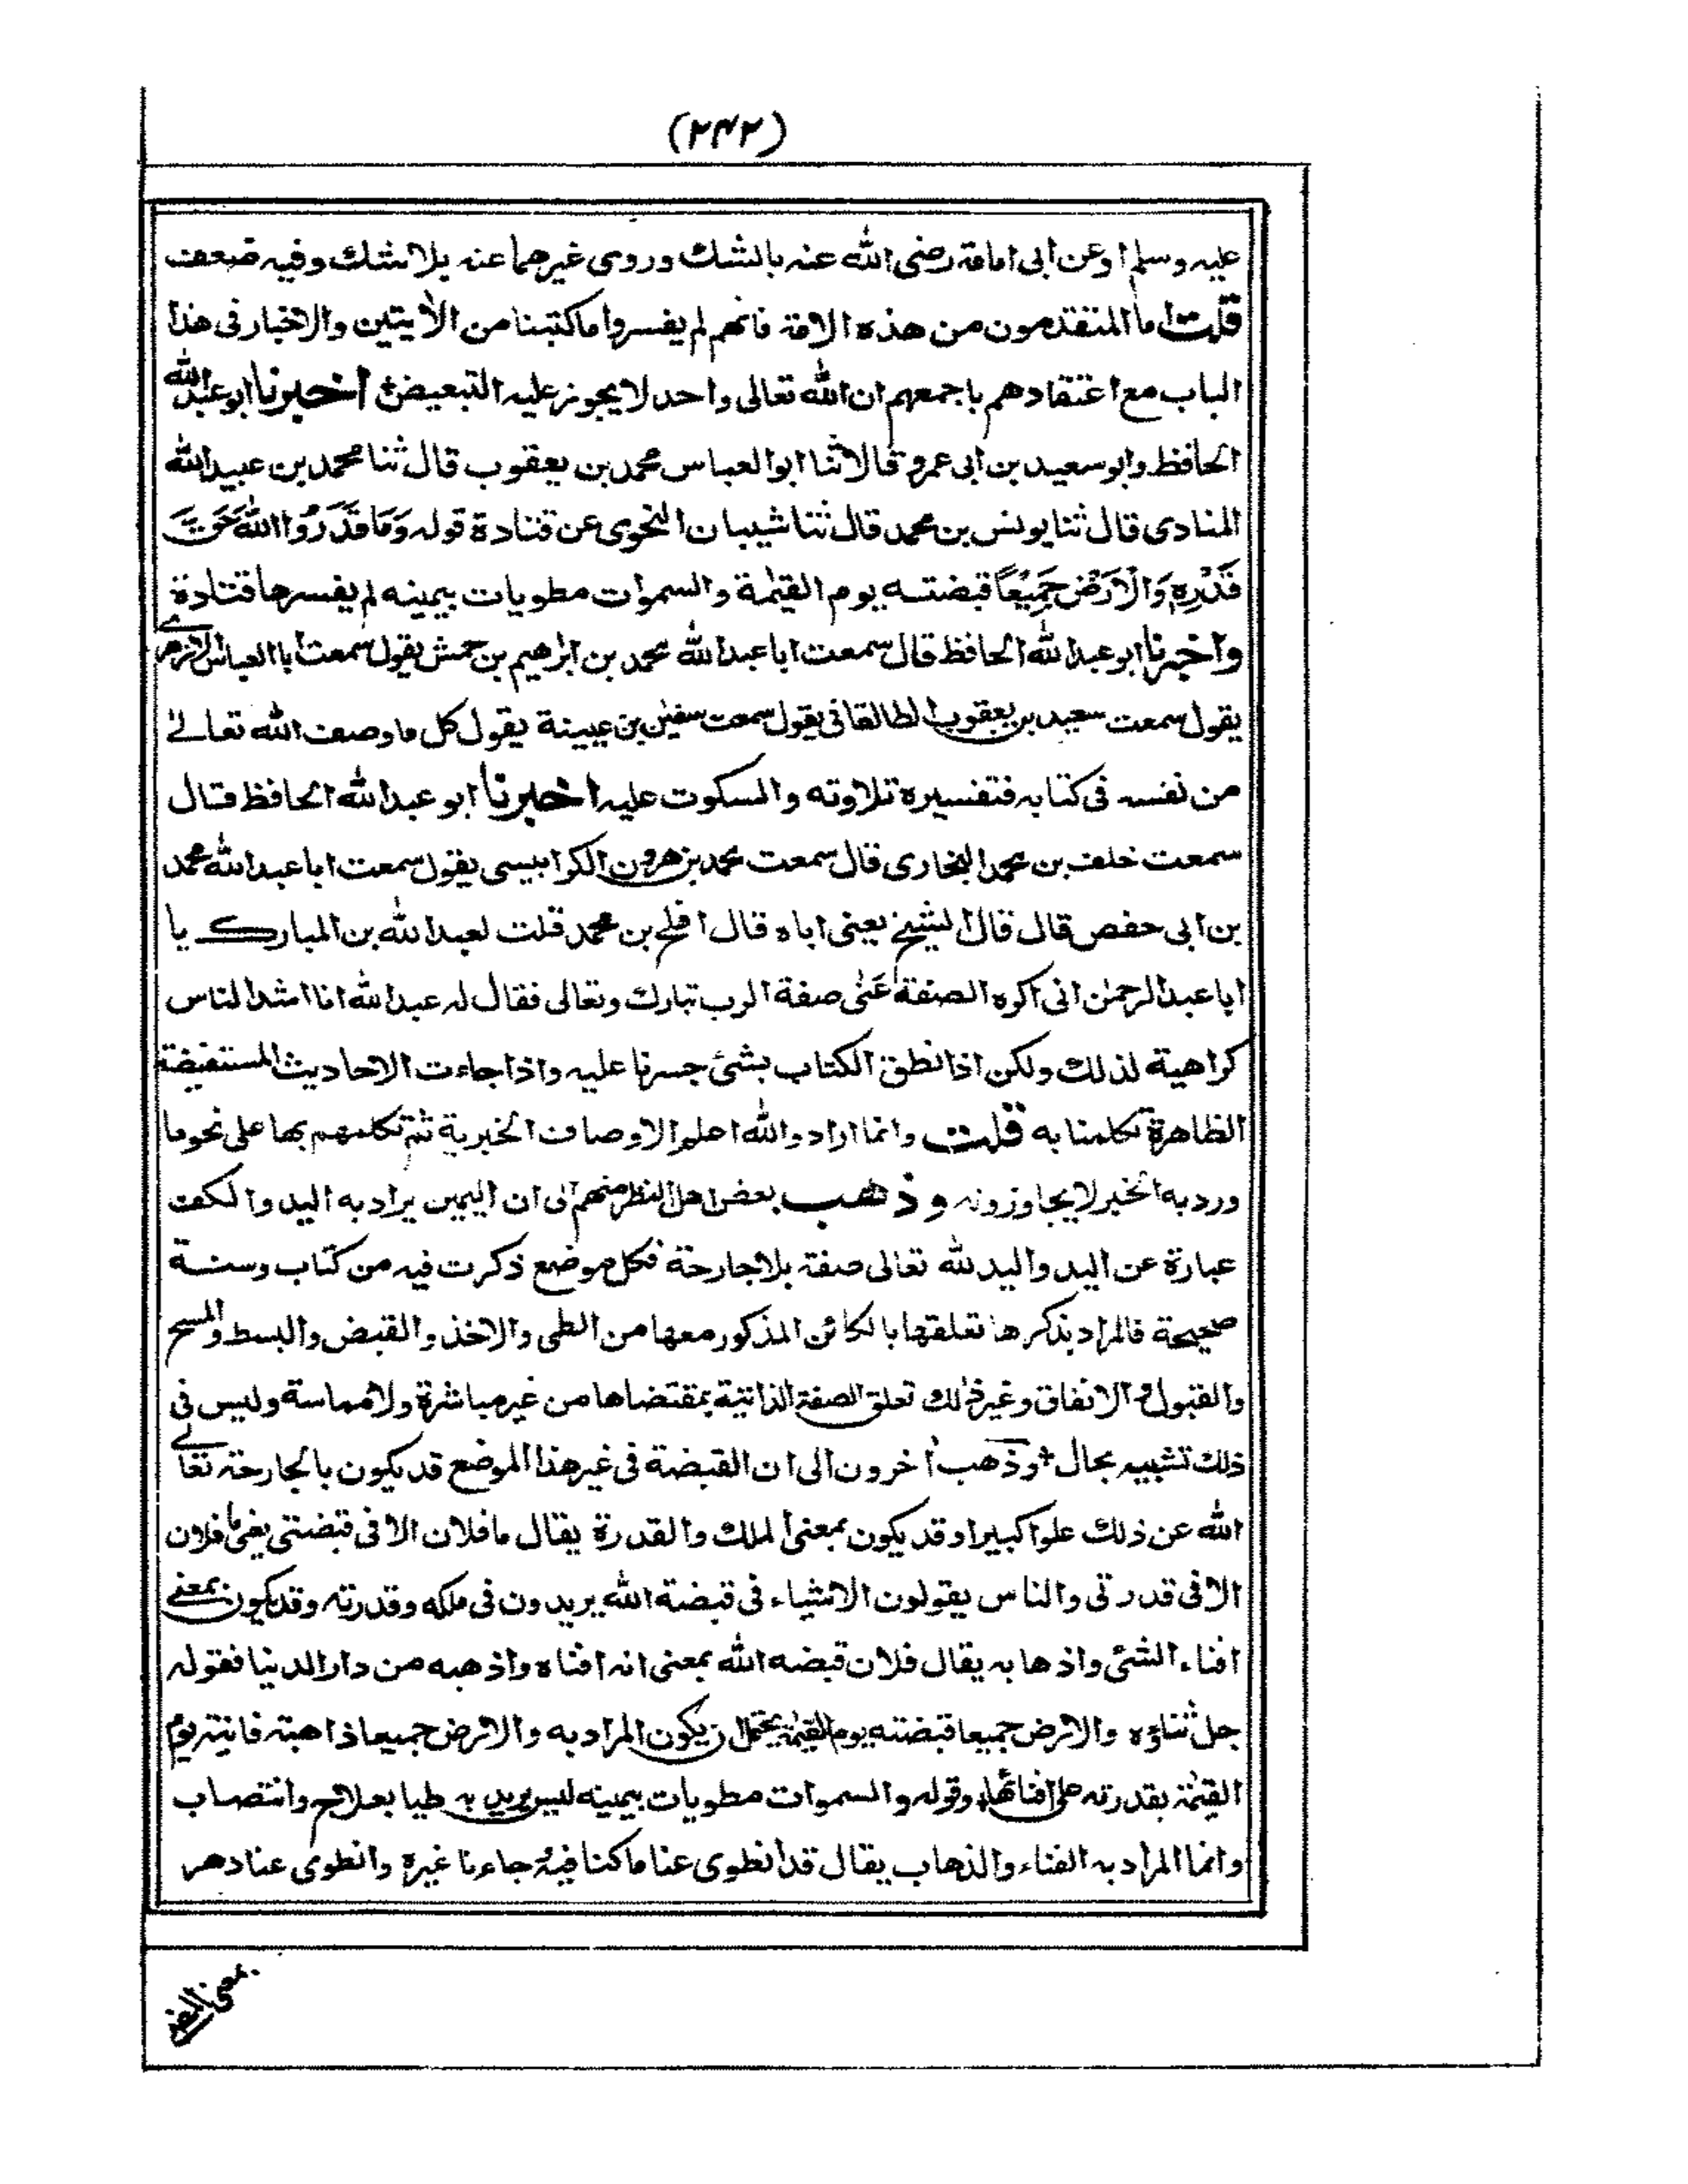 (۲۴۲)
عليه وسلم اوعن ابى امامة رضى الله عنه بالشك وروى غيرهما عنه بلا شك وفيه ضعف
قلت اما المتقدمون من هذه الامة فانهم لم يفسروا ماكتبنا من الأيتين والاخبار فى هذا
الباب مع اعتقادهم باجمعهم ان الله تعالى واحد لا يجوز عليه التبعيض اخبرنا ابوعبد الله
الحافظ وابوسعيد بن ابى عمرو قالا ثنا ابوالعباس محمد بن يعقوب قال ثنا محمد بن عبيد الله
المنادى قال ثنا يونس بن محمد قال ثنا شيبان النحوى عن قتادة قوله وَمَا قَدَرُوا اللهَ حَقَّ
قَدْرِهٖ وَالْاَرْضُ جَمِيْعًا قبضته يوم القيٰمة والسمٰوات مطويات بيمينه لم يفسرها قتادة
واخبرنا ابوعبد الله الحافظ قال سمعت اباعبد الله محمد بن ابراهيم بن حمش يقول سمعت ابا العباس الازهرى
يقول سمعت سعيد بن يعقوب الطالقانى يقول سمعت سفيٰن بن عيينة يقول كل ما وصف الله تعالىٰ
من نفسه فى كتابه فتفسيره تلاوته والسكوت عليه اخبرنا ابو عبد الله الحافظ قال
سمعت خلف بن محمد البخارى قال سمعت محمد بن هرون الكرابيسى يقول سمعت اباعبد الله محمد
بن ابى حفص قال قال الشيخ يعنى اباه قال افلح بن محمد قلت لعبد الله بن المبارك يا
اباعبد الرحمٰن انى اكره الصفة عَنٰى صفة الرب تبارك وتعالى فقال له عبد الله انا اشد الناس
كراهية لذلك ولكن اذا نطق الكتاب بشئ جسرنا عليه واذا جاءت الاحاديث المستفيضة
الظاهرة تكلمنا به قلت وانما اراد والله اعلم الاوصاف الخبرية ثم تكلمهم بها على نحو ما
ورد به الخبر لا يجاوزونه وذهب بعض اهل النظر منهم الى ان اليمين يراد به اليد والكف
عبارة عن اليد واليد لله تعالى صفة بلا جارحة فكل موضع ذكرت فيه من كتاب وسنة
صحيحة فالمراد بذكرها تعلقها بالكائن المذكور معها من الطى والاخذ والقبض والبسط والمسح
والقبول والانفاق وغير ذلك تعلق الصفة الذاتية بمقتضاها من غير مباشرة ولا مماسة وليس فى
ذلك تشبيه بحال وذهب أخرون الى ان القبضة فى غير هذا الموضع قد يكون بالجارحة تعالى
الله عن ذلك علوا كبيرا وقد يكون بمعنى الملك والقدرة يقال ما فلان الا فى قبضتى يعنى ما فلان
الا فى قدرتى والناس يقولون الاشياء فى قبضة الله يريدون فى ملكه وقدرته وقد يكون بمعنى
افناء الشئ واذهابه يقال فلان قبضه الله بمعنى انه افناه واذهبه من دار الدنيا فقوله
جل ثناؤه والارض جميعا قبضته يوم القيٰمة يحتمل ان يكون المراد به والارض جميعا ذاهبة فانية يوم
القيٰمة بقدرته على افنائها وقوله والسموات مطويات بيمينه ليس يريد به طيا بعلاج وانتصاب
وانما المراد به الفناء والذهاب يقال قد انطوى عنا ما كنا فيه وجاءنا غيره وانطوى عنا دهر